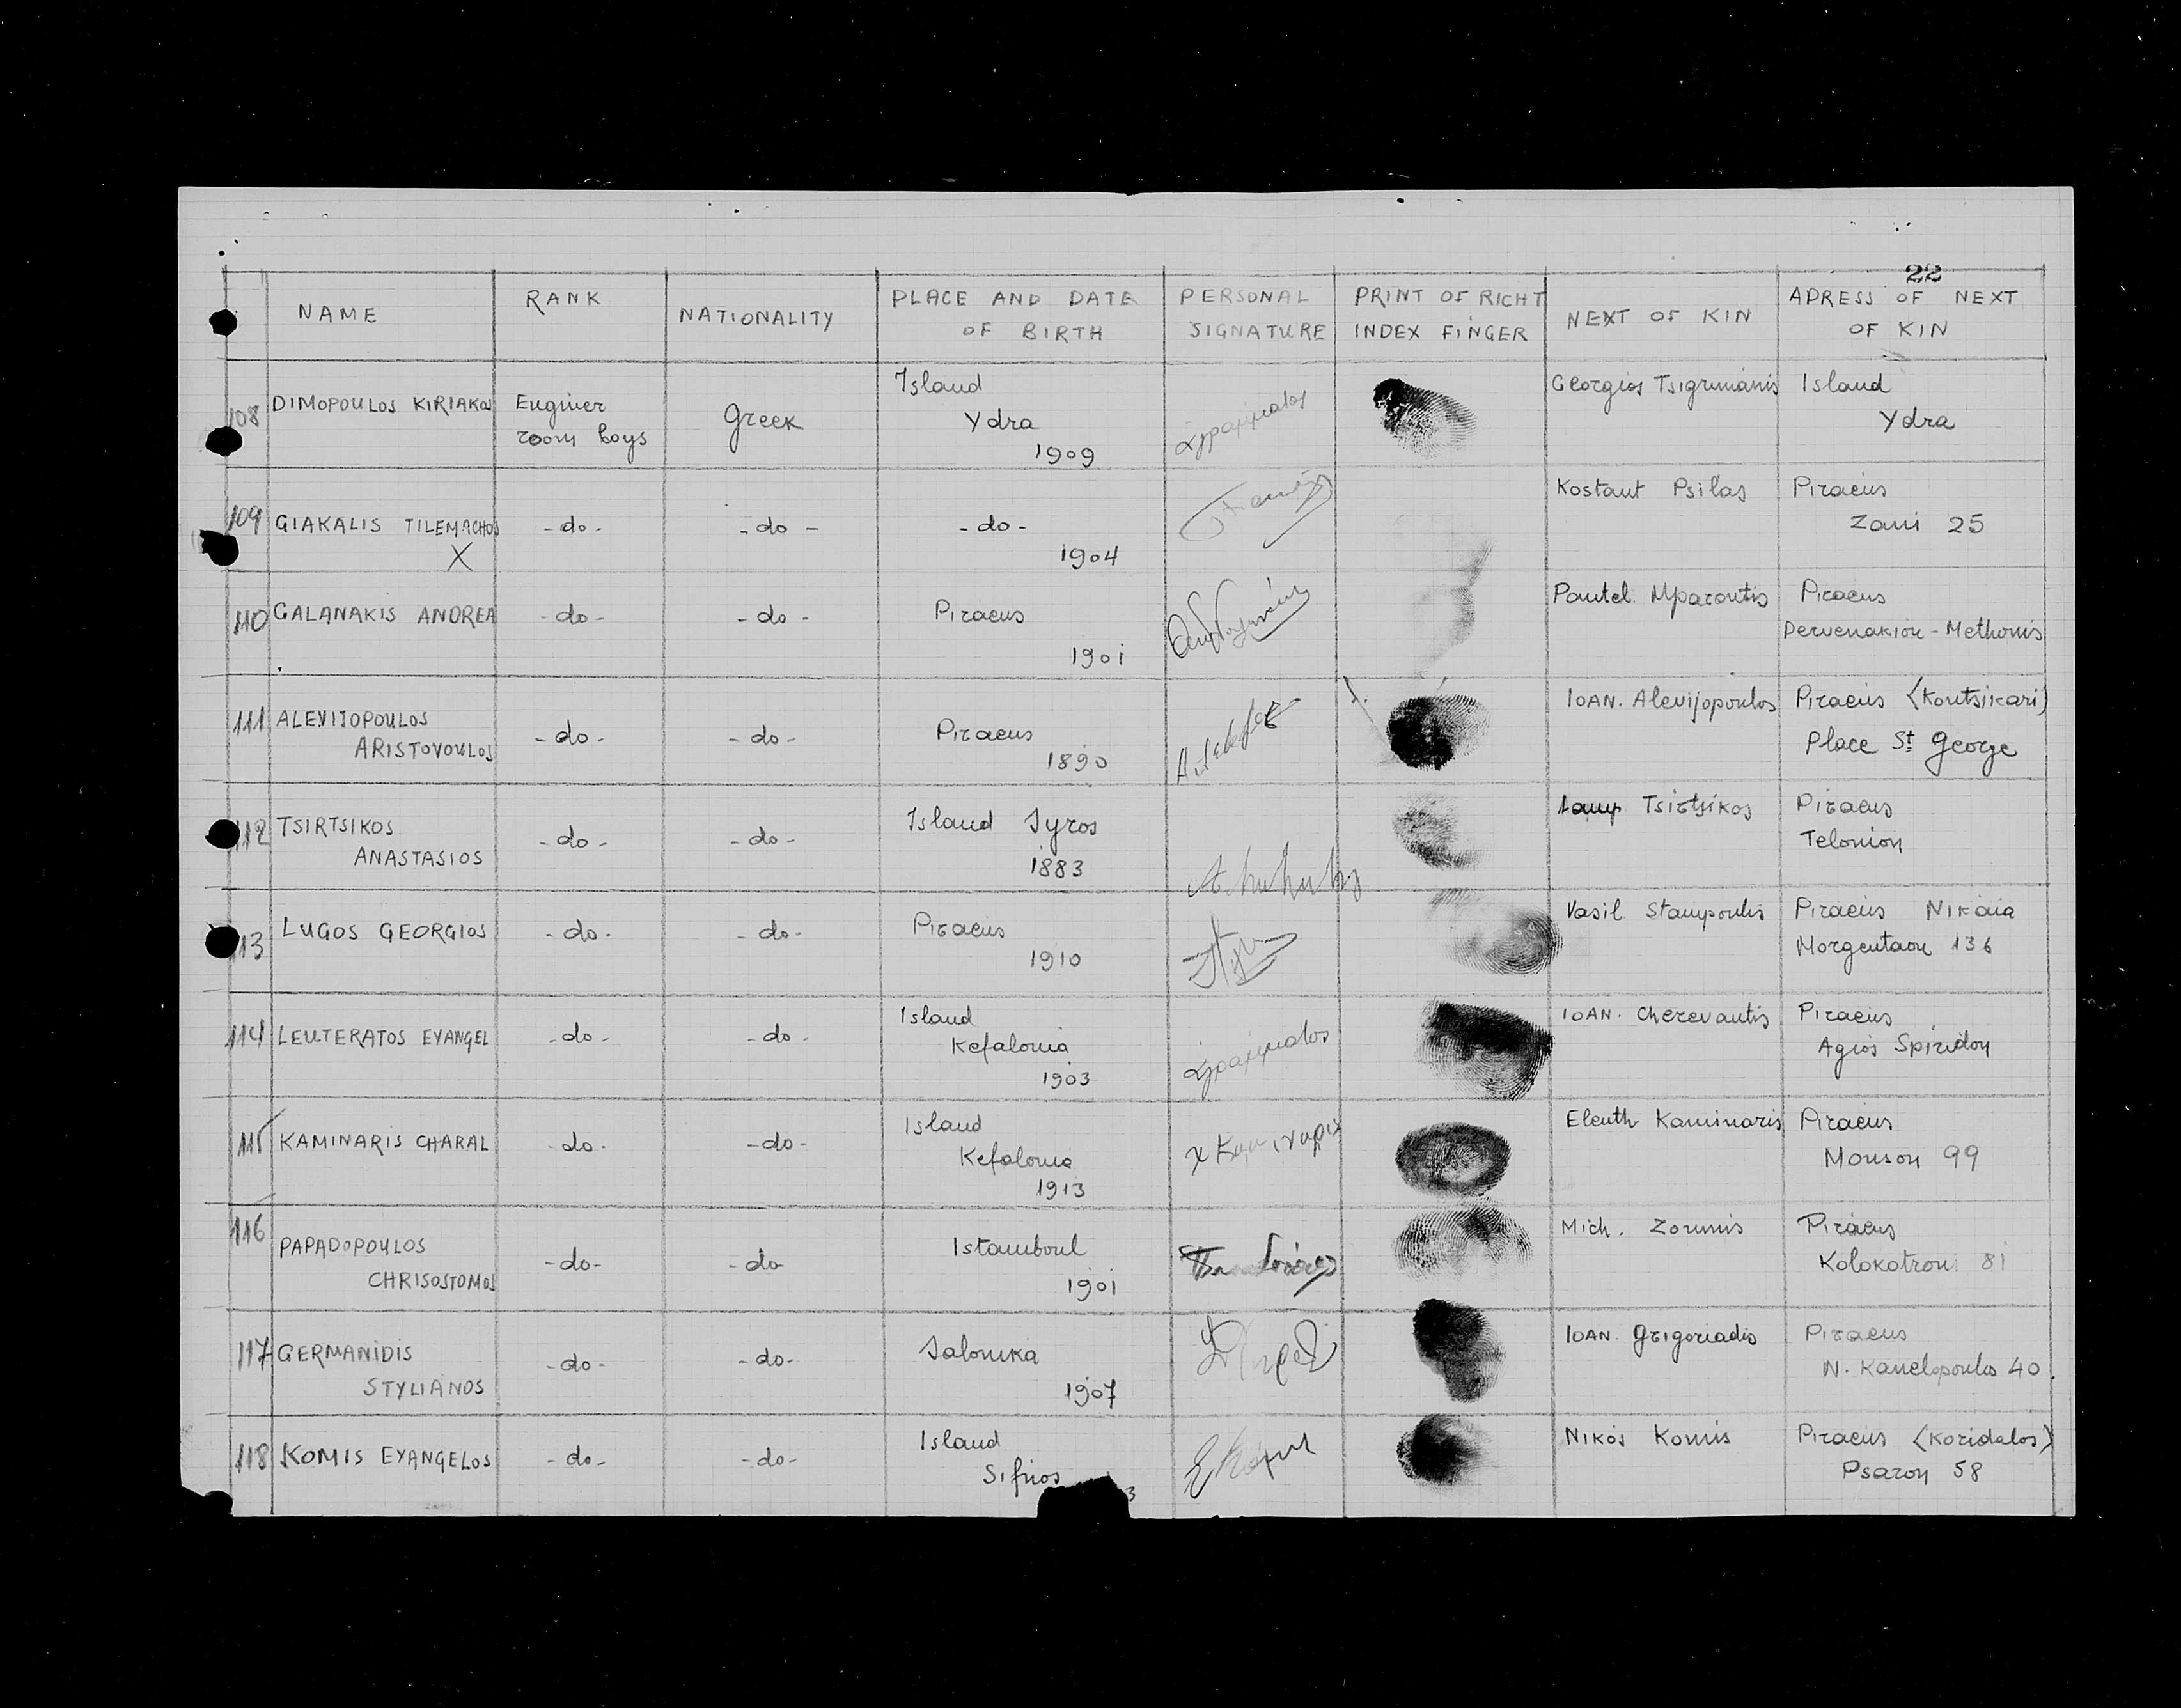 22
NAME
RANK
NATIONALITY
PLACE AND DATE
OF BIRTH
PERSONAL
SIGNATURE
PRINT OF RICHT
INDEX FINGER
NEXT OF KIN
ADRESS OF NEXT
OF KIN
108
DIMOPOULOS KIRIAKOS
Enginer
room boys
Greek
Island
Ydra
1909
αγραμματος
Georgios
Island
Ydra
109
GIAKALIS TILEMACHOS
X
-do-
-do-
-do-
1904
Kostant Psilas
Piraeus
Zani 25
110
GALANAKIS ANDREA
-do-
-do-
Piraeus
1901
Pantel Mparoutis
Piraeus
Dervenakiou-Methonis
111
ALEVIJOPOULOS
ARISTOVOULOS
-do-
-do-
Piraeus
1890
IOAN. Alevijopoulos
Piraeus (Koutsikari)
Place St George
112
TSIRTSIKOS
ANASTASIOS
-do-
-do-
Island Syros
1883
Lamp Tsirtsikos
Piraeus
Telonion
113
LUGOS GEORGIOS
-do-
-do-
Piraeus
1910
Vasil Stampoulis
Piraeus Nikaia
Morgentaou 136
114
LEUTERATOS EVANGEL
-do-
-do-
Island
Kefalonia
1903
αγραμματος
IOAN. Cherevantis
Piraeus
Agios Spiridon
115
KAMINARIS CHARAL
-do-
-do-
Island
Kefalonia
1913
Χ Καμιναρις
Eleuth Kaminaris
Piraeus
Mouson 99
116
PAPADOPOULOS
CHRISOSTOMOS
-do-
-do-
Istamboul
1901
Mich. Zoumis
Piraeus
Kolokotroni 81
117
GERMANIDIS
STYLIANOS
-do-
-do-
Salonika
1907
IOAN. Grigoriadis
Piraeus
N. Kanelopoulos 40
118
KOMIS EVANGELOS
-do-
-do-
Island
Sifnos
3
Nikos Komis
Piraeus (Koridalos)
Psaron 58